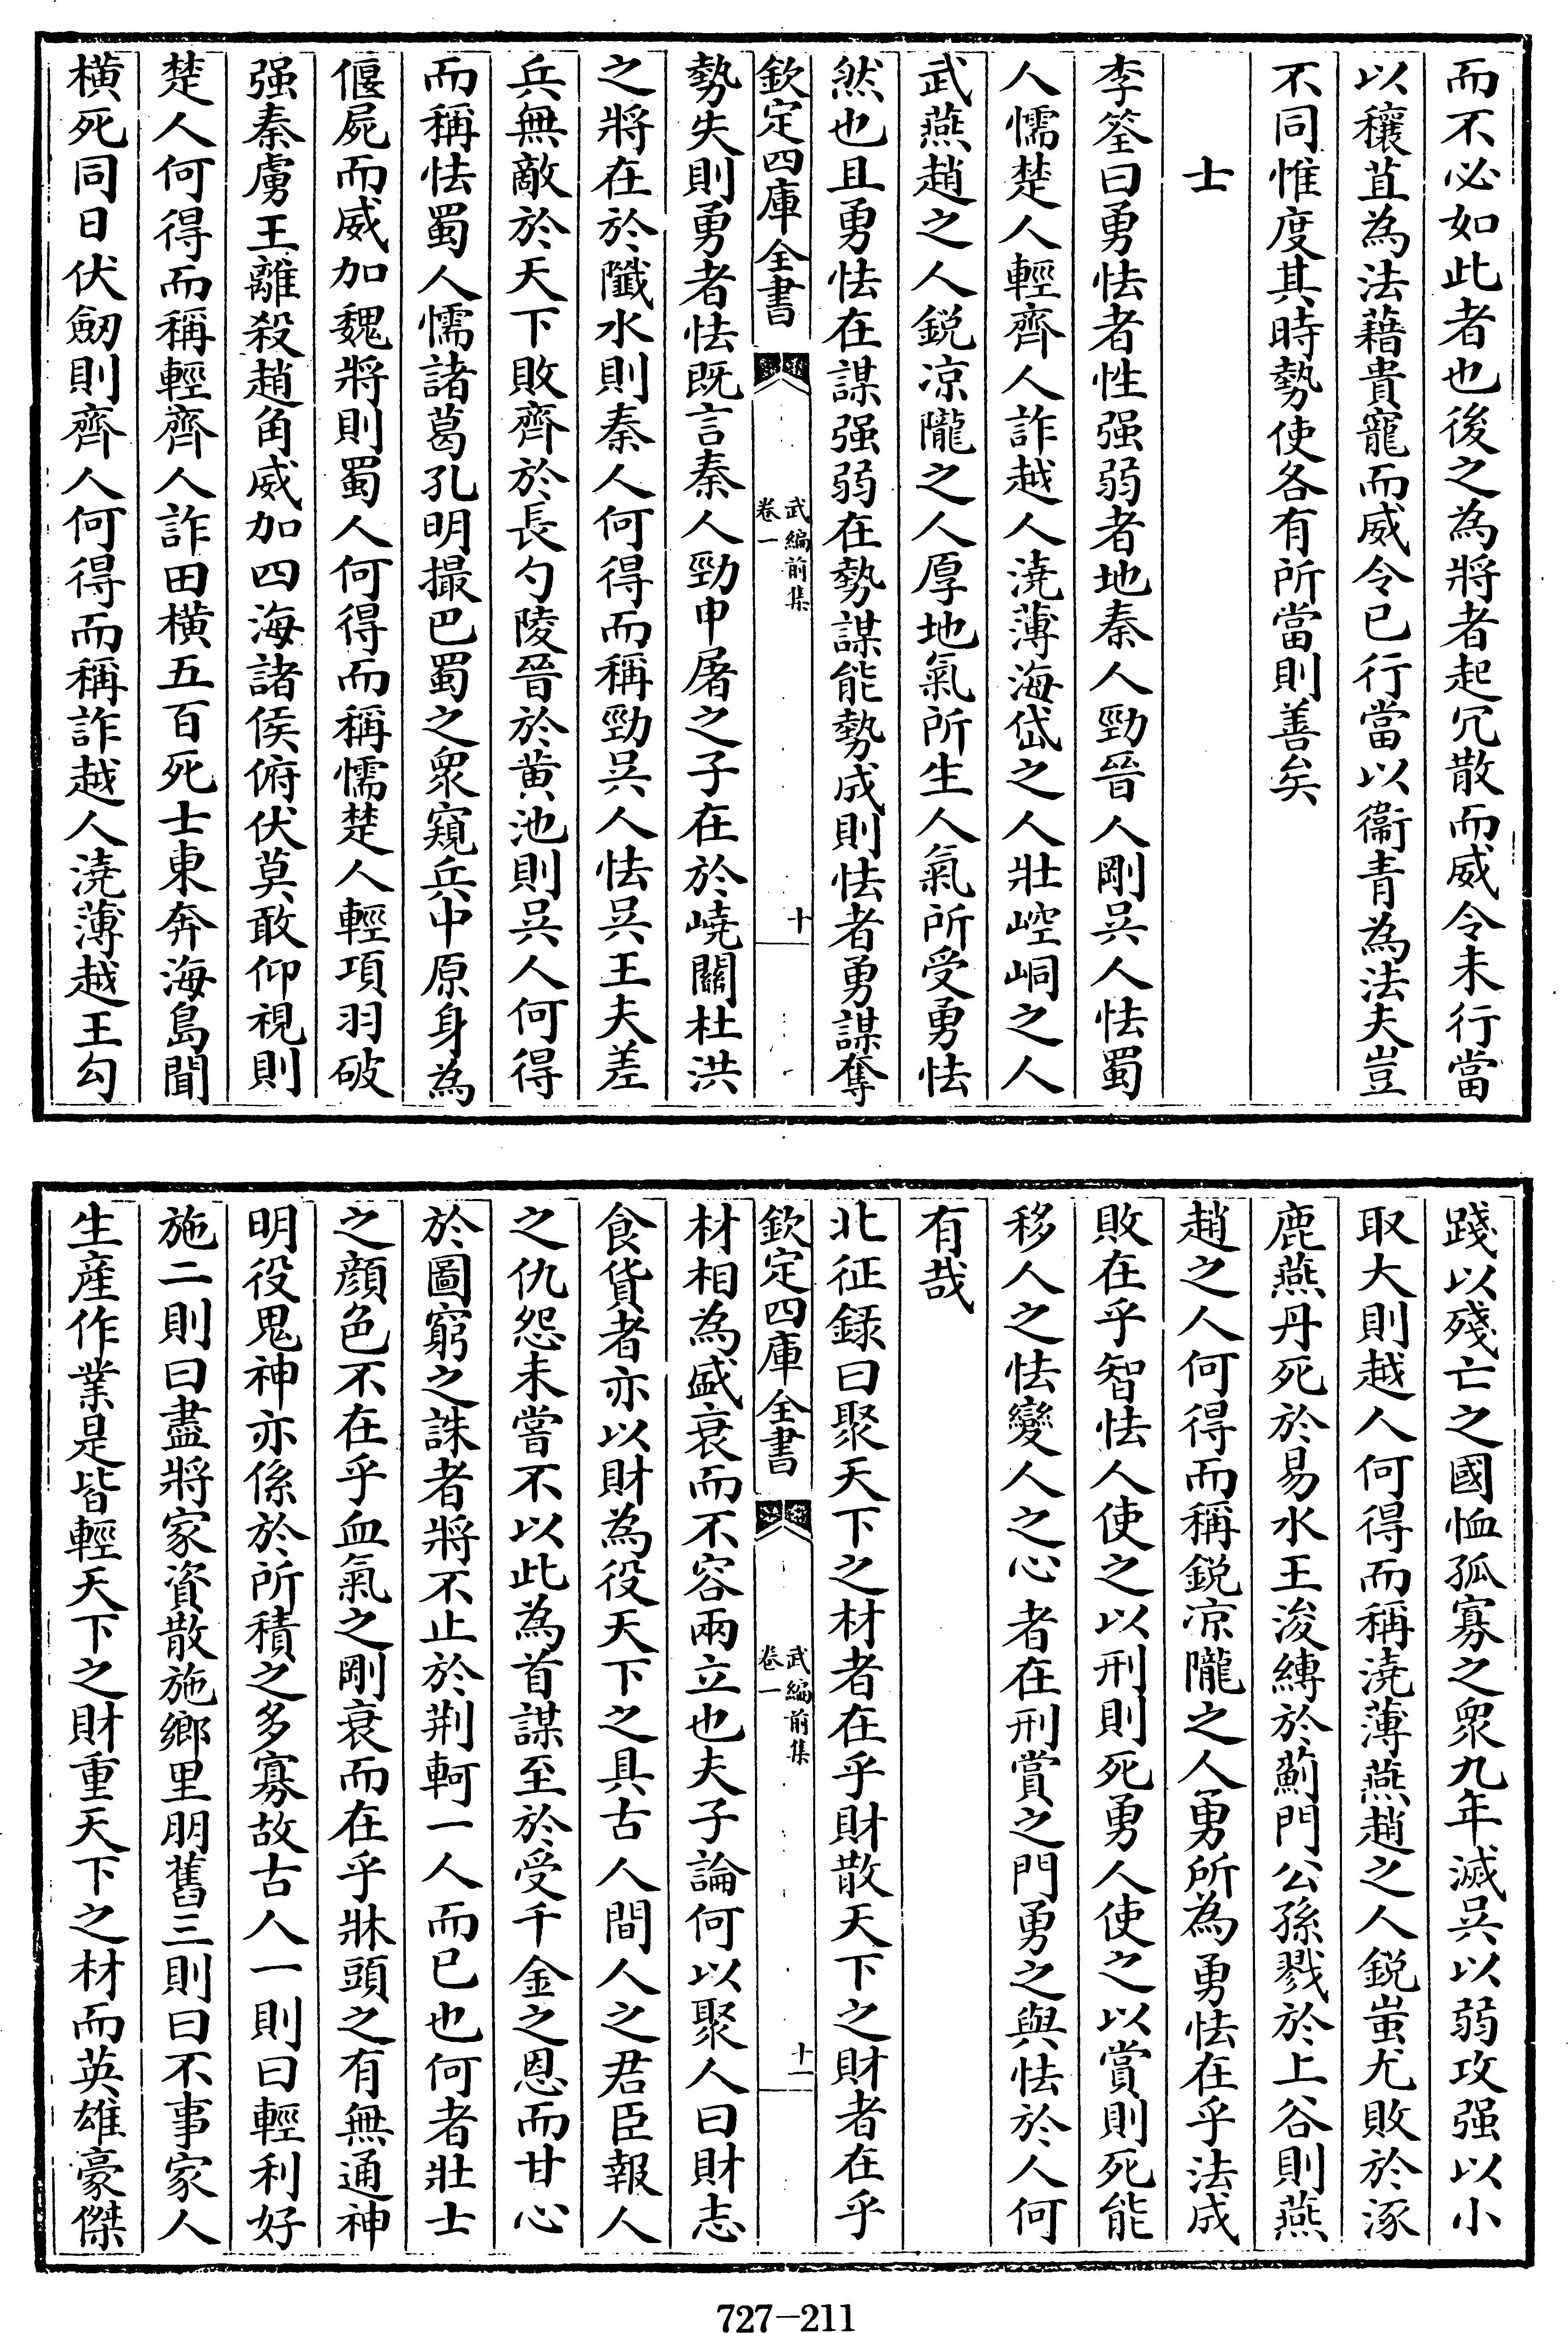 而不必如此者也後之為將者起冗散而威令未行當
以穰苴為法藉貴寵而威令已行當以衞青為法夫豈
不同惟度其時勢使各有所當則善矣
士
李筌曰勇怯者性强弱者地秦人勁晉人剛吳人怯蜀
人懦楚人輕齊人詐越人澆薄海岱之人壯崆峒之人
武燕趙之人鋭凉隴之人厚地氣所生人氣所受勇怯
然也且勇怯在謀强弱在勢謀能勢成則怯者勇謀奪
欽定四庫全書
武編前集
卷一
十
勢失則勇者怯既言秦人勁申屠之子在於嶢關杜洪
之將在於隵水則秦人何得而稱勁吳人怯吳王夫差
兵無敵於天下敗齊於長勺陵晉於黄池則吳人何得
而稱怯蜀人懦諸葛孔明撮巴蜀之衆窺兵中原身為
偃屍而威加魏將則蜀人何得而稱懦楚人輕項羽破
强秦虜王離殺趙角威加四海諸侯俯伏莫敢仰視則
楚人何得而稱輕齊人詐田横五百死士東奔海島聞
横死同日伏劒則齊人何得而稱詐越人澆薄越王勾
踐以殘亡之國恤孤寡之衆九年滅吳以弱攻强以小
取大則越人何得而稱澆薄燕趙之人鋭蚩尤敗於涿
鹿燕丹死於易水王浚縛於薊門公孫戮於上谷則燕
趙之人何得而稱鋭凉隴之人勇所為勇怯在乎法成
敗在乎智怯人使之以刑則死勇人使之以賞則死能
移人之怯變人之心者在刑賞之門勇之與怯於人何
有哉
北征録曰聚天下之材者在乎財散天下之財者在乎
欽定四庫全書
武編前集
卷一
十一
材相為盛衰而不容兩立也夫子論何以聚人曰財志
食貨者亦以財為役天下之具古人間人之君臣報人
之仇怨未嘗不以此為首謀至於受千金之恩而甘心
於圖窮之誅者將不止於荆軻一人而已也何者壯士
之顔色不在乎血氣之剛衰而在乎牀頭之有無通神
明役鬼神亦係於所積之多寡故古人一則曰輕利好
施二則曰盡將家資散施鄉里朋舊三則曰不事家人
生産作業是皆輕天下之財重天下之材而英雄豪傑
727-211